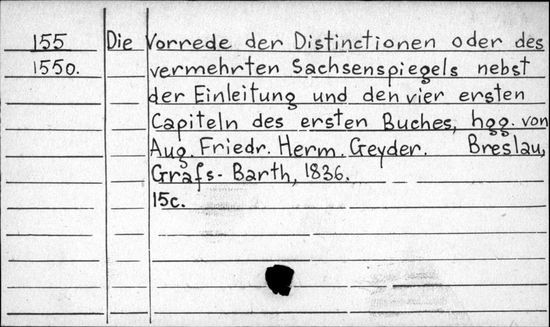 155 Die Vorrede der Distinctionen oder des
1550. vermehrten Sachsenspiegels nebst
der Einleitung und den vier ersten
Capiteln des ersten Buches, hgg. von
Aug. Friedr. Herm. Geyder. Breslau,
Grafs-Barth, 1836.
15c.